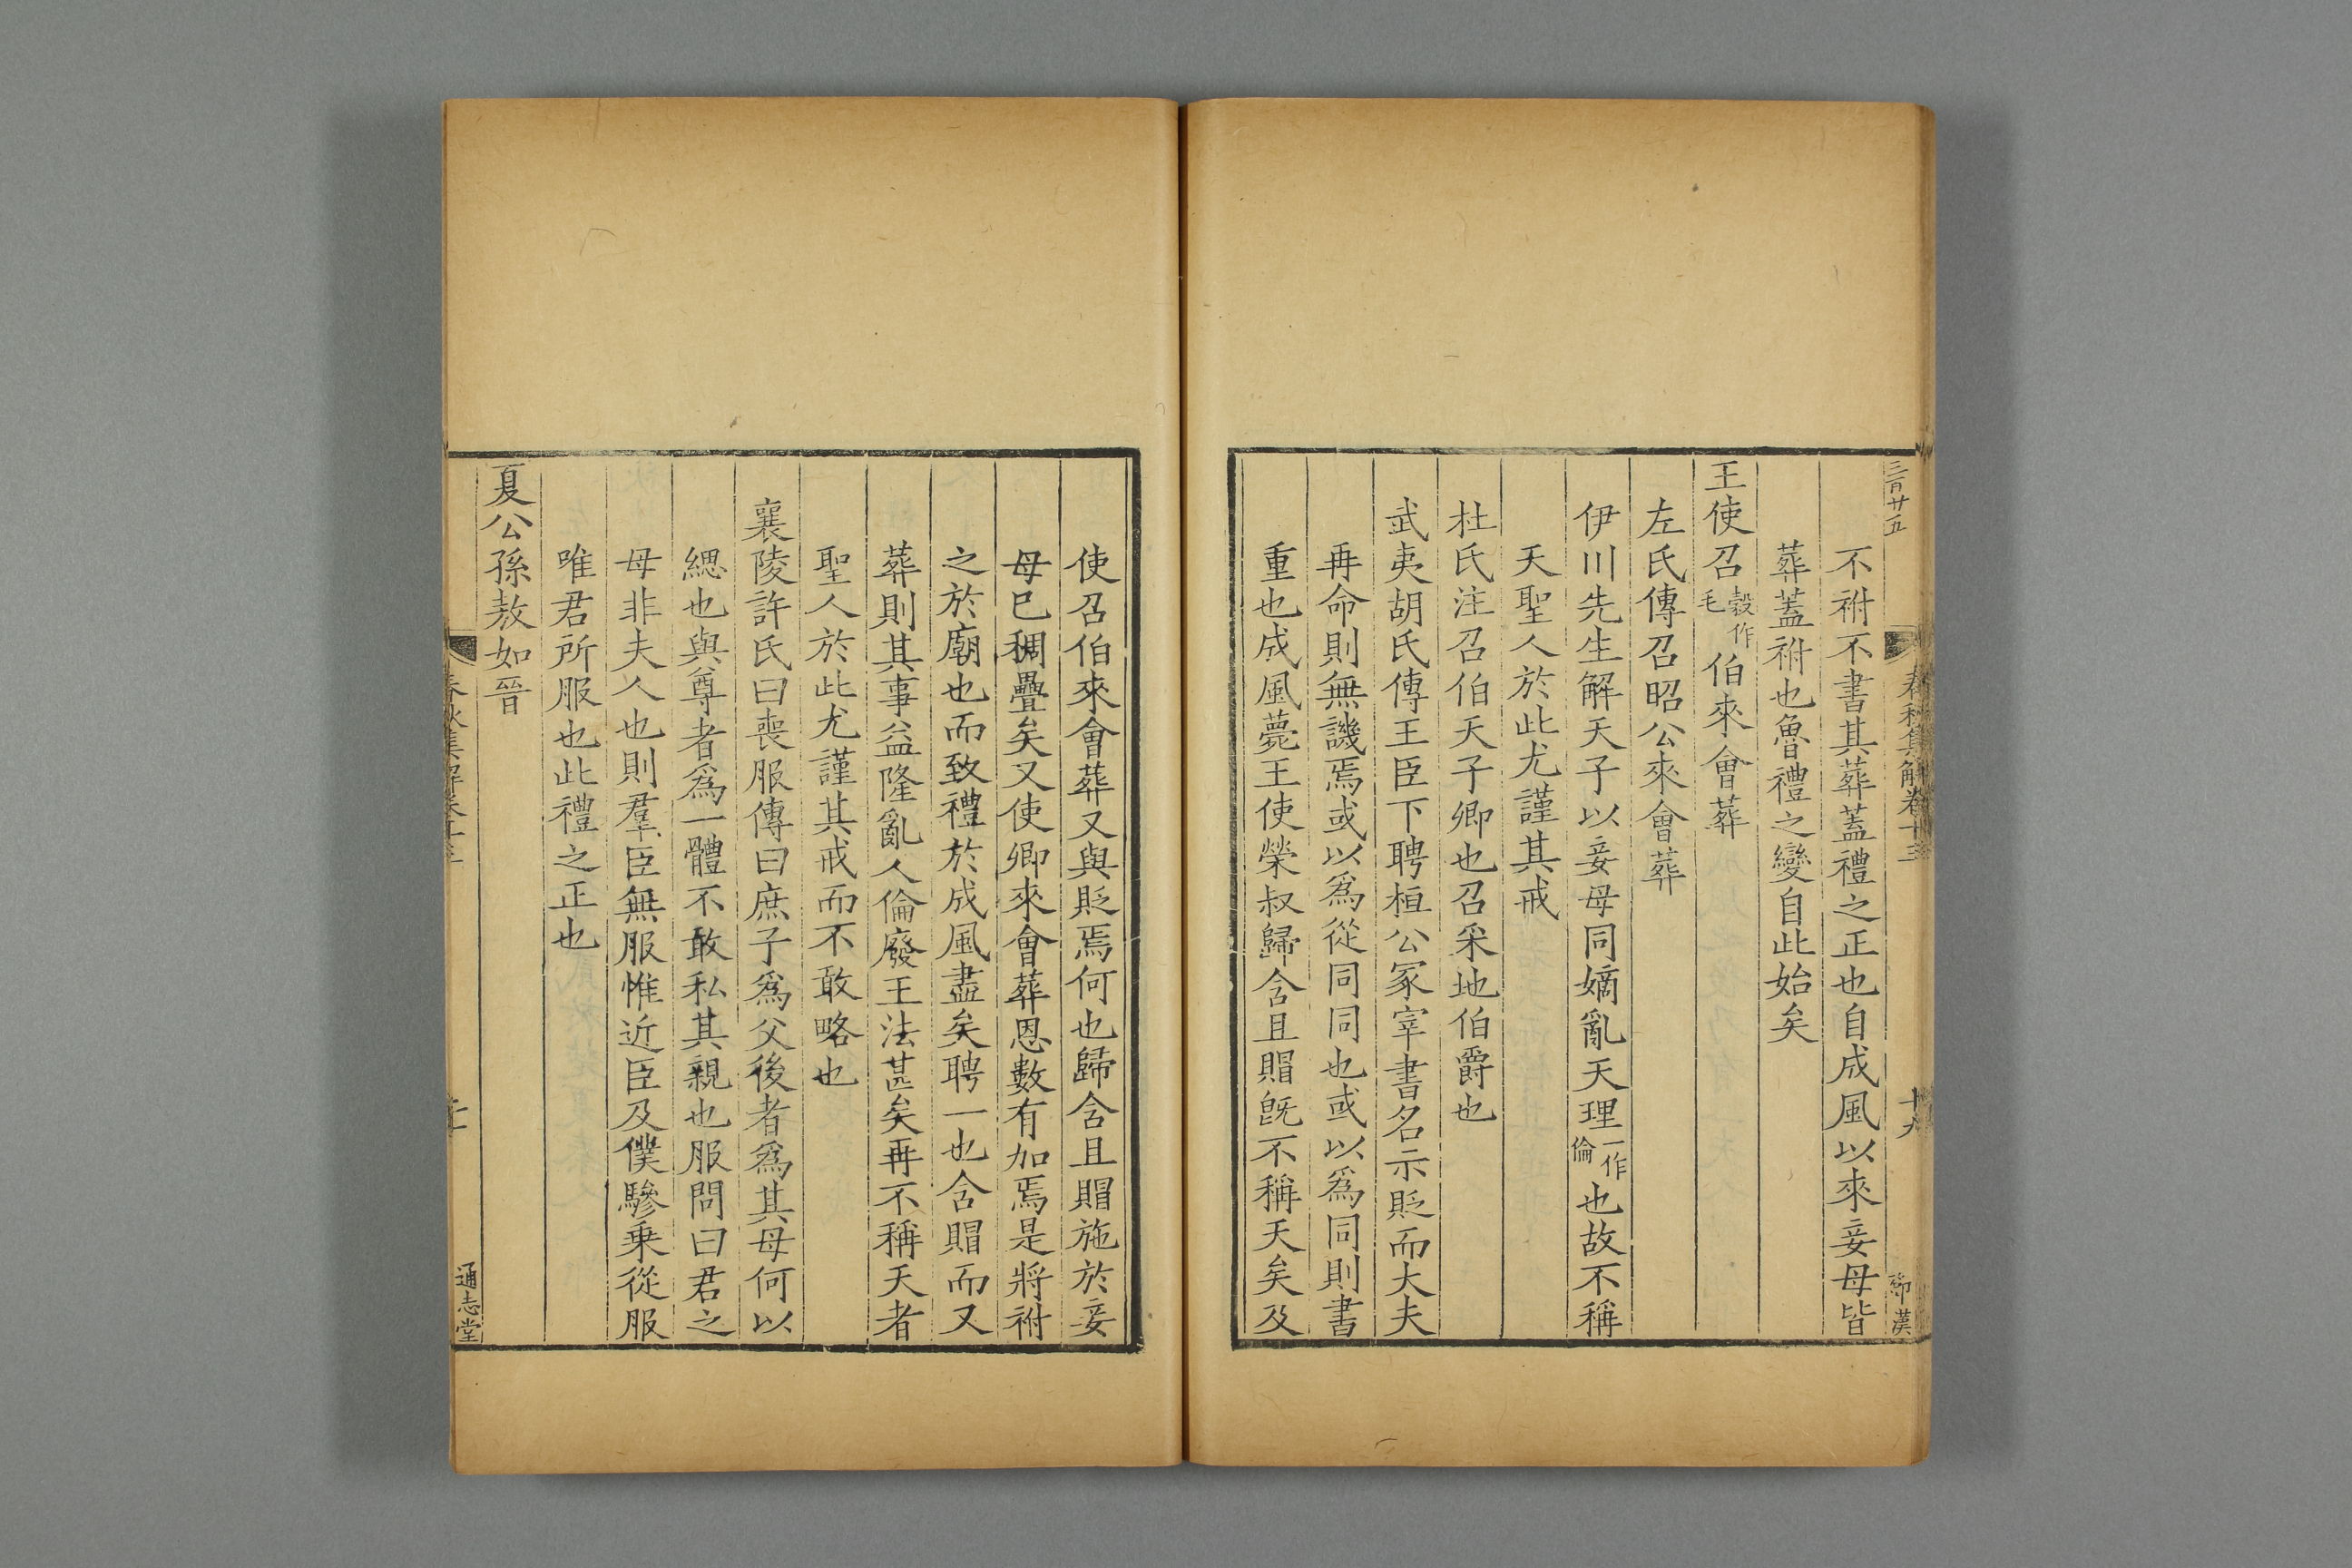 三百廿五
春秋集解卷十三
十九
鄧漢
不祔不書其葬蓋禮之正也自成風以來妾母皆
葬蓋祔也魯禮之變自此始矣
王使召穀作毛伯來會葬
左氏傳召昭公來會葬
伊川先生解天子以妾母同嫡亂天理一作倫也故不稱
天聖人於此尤謹其戒
杜氏注召伯天子卿也召采地伯爵也
武夷胡氏傳王臣下聘桓公冢宰書名示貶而大夫
再命則無譏焉或以為從同同也或以為同則書
重也成風薨王使榮叔歸含且賵旣不稱天矣及
使召伯來會葬又與貶焉何也歸含且賵施於妾
母已稠疊矣又使卿來會葬恩數有加焉是將祔
之於廟也而致禮於成風盡矣聘一也含賵而又
葬則其事益隆亂人倫廢王法甚矣再不稱天者
聖人於此尤謹其戒而不敢略也
襄陵許氏曰喪服傳曰庶子爲父後者爲其母何以
緦也與尊者爲一體不敢私其親也服問曰君之
母非夫人也則羣臣無服惟近臣及僕驂乗從服
唯君所服也此禮之正也
夏公孫敖如晉
春秋集解卷十三
通志堂